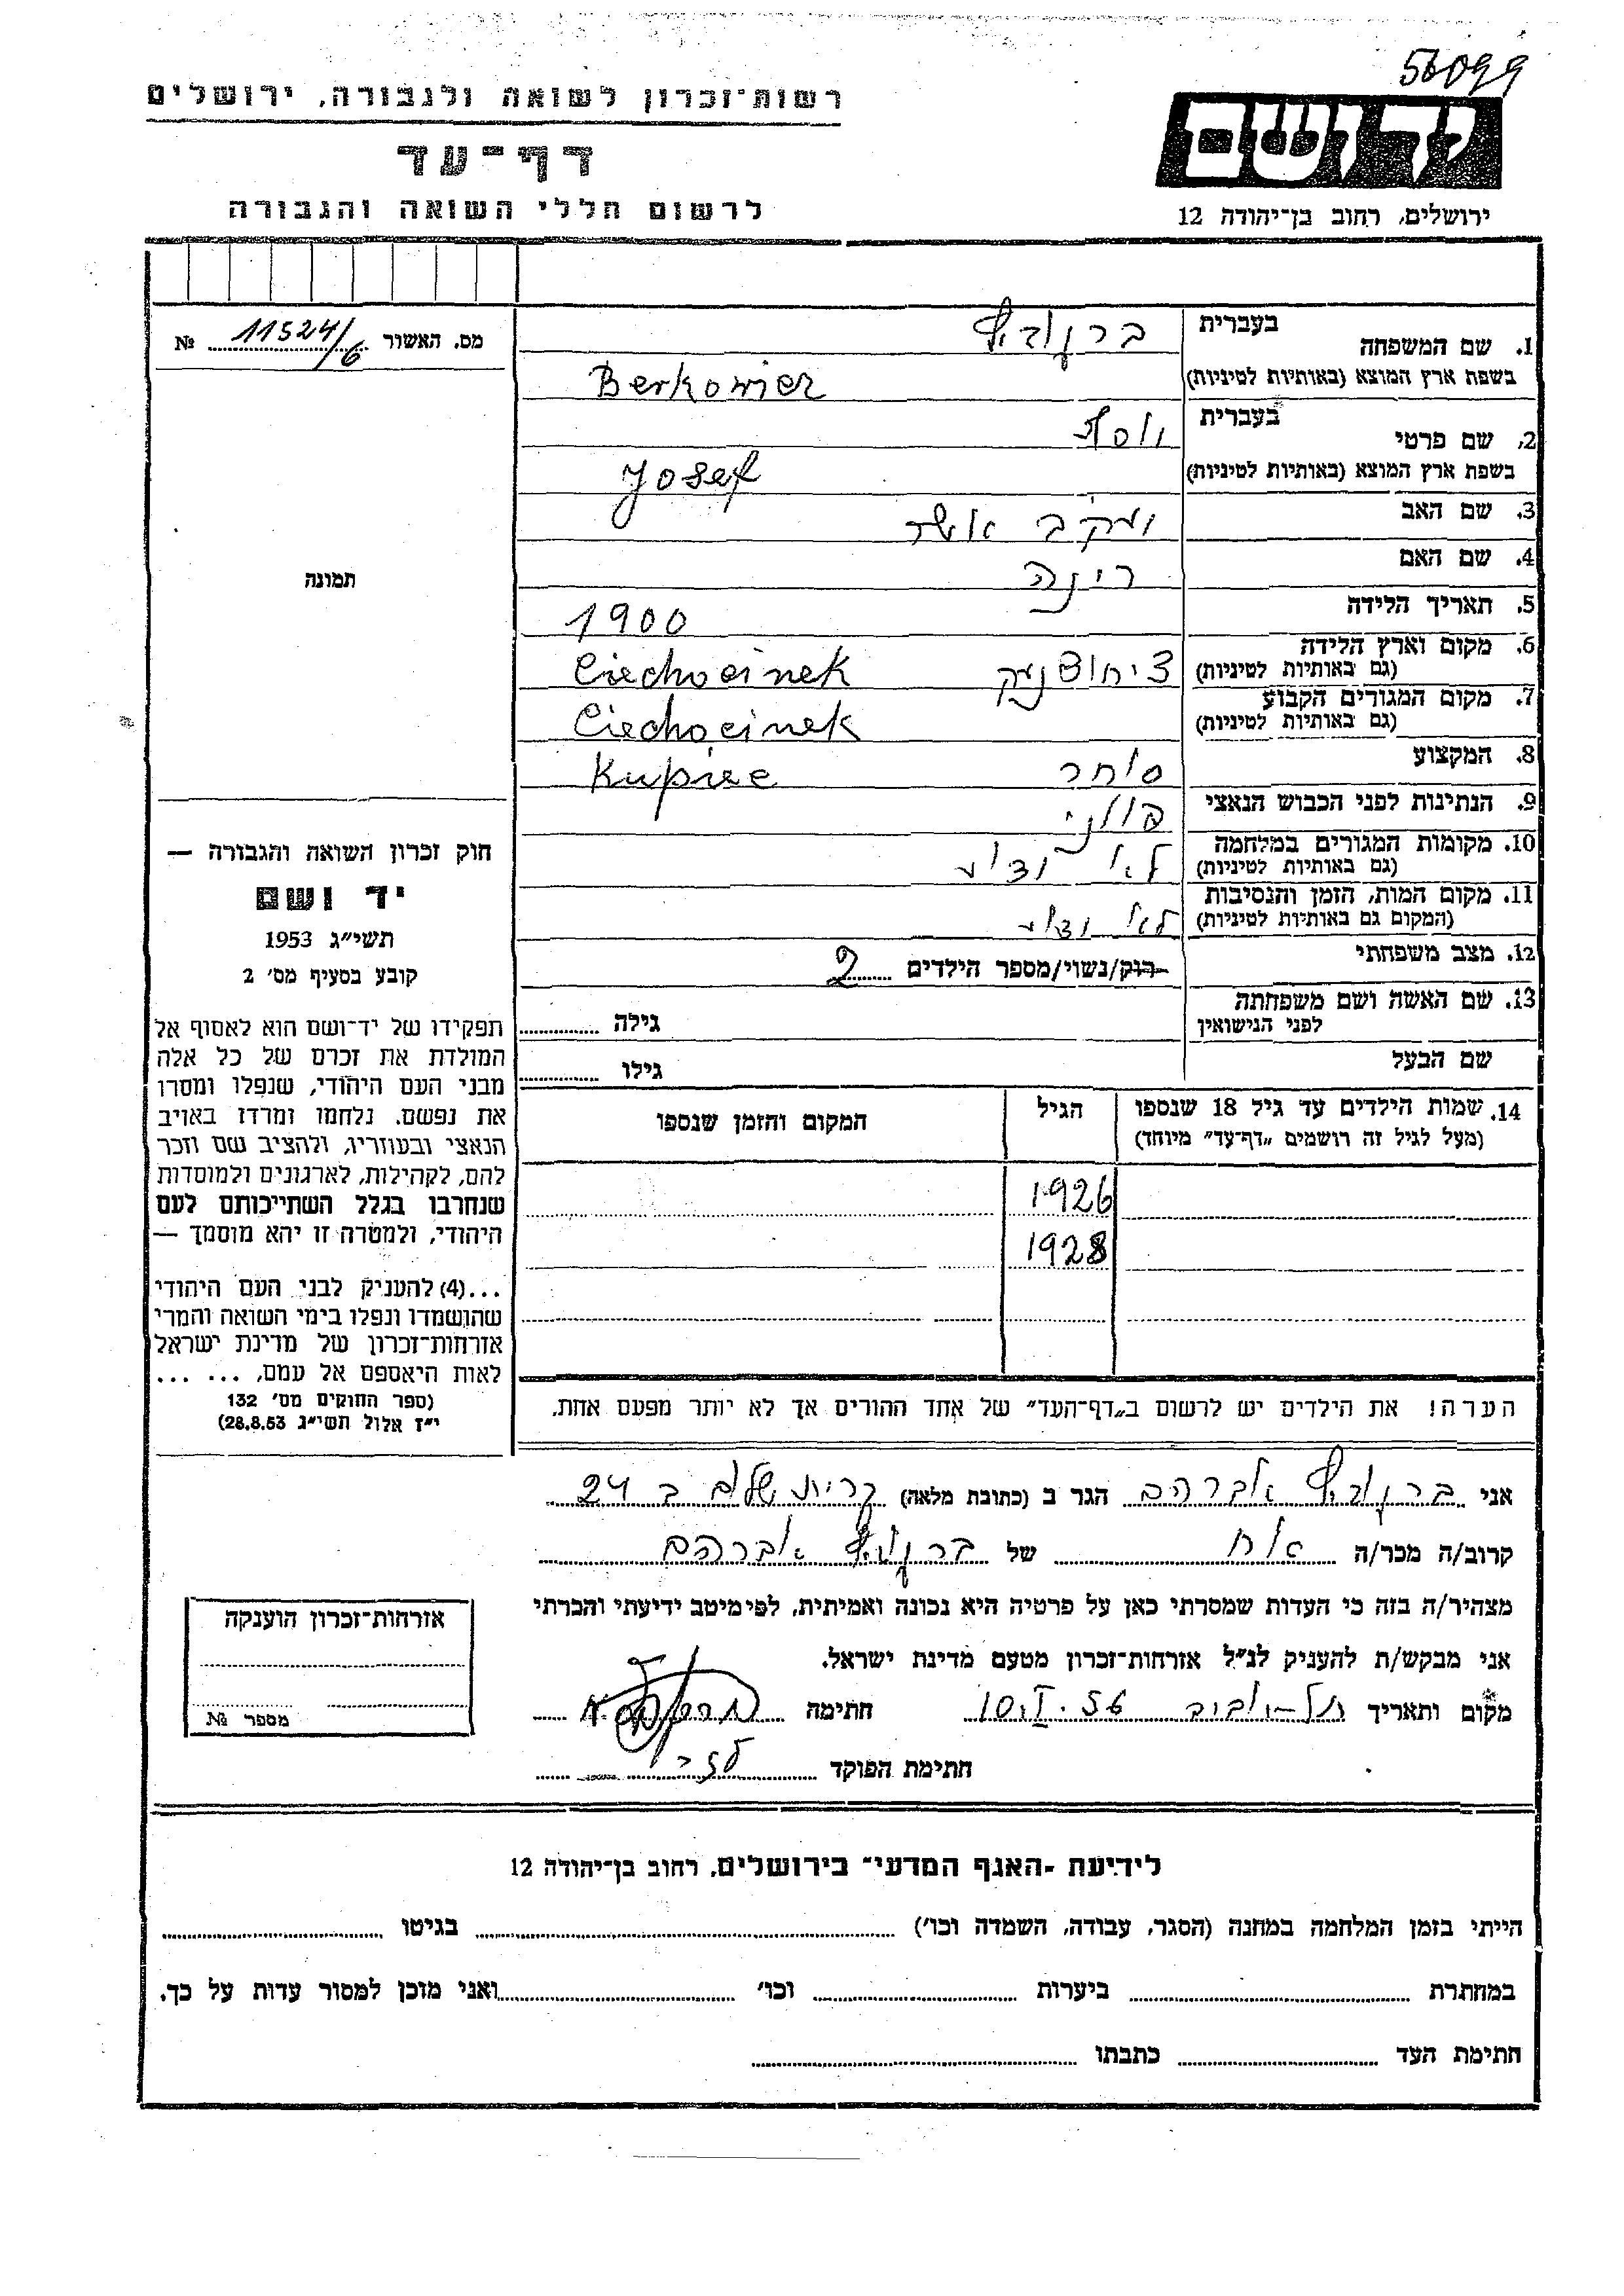 56099
רשות־זכרון לשואה ולגבורה, ירושלים
דף־עד
לרשום חללי השואה והגבורה
יד ושם
ירושלים, רחוב בן־יהודה 12
מס. האשור 11524/6 №
תמונה
חוק זכרון השואה והגבורה —
יד ושם
תשי״ג 1953
קובע בסעיף מס׳ 2
תפקידו של יד־ושם הוא לאסוף אל
המולדת את זכרם של כל אלה
מבני העם היהודי, שנפלו ומסרו
את נפשם, נלחמו ומרדו באויב
הנאצי ובעוזריו, ולהציב שם וזכר
להם, לקהילות, לארגונים ולמוסדות
שנחרבו בגלל השתייכותם לעם
היהודי, ולמטרה זו יהא מוסמך —
...(4) להעניק לבני העם היהודי
שהושמדו ונפלו בימי השואה והמרי
אזרחות־זכרון של מדינת ישראל
לאות היאספם אל עמם, ... ...
(ספר החוקים מס׳ 132
י״ז אלול תשי״ג 28.8.53)
1. שם המשפחה בעברית
בשפת ארץ המוצא (באותיות לטיניות) Berkowicz
2. שם פרטי בעברית יוסף
בשפת ארץ המוצא (באותיות לטיניות) Josef
3. שם האב יעקב אשר
4. שם האם רינה
5. תאריך הלידה 1900
6. מקום וארץ הלידה (גם באותיות לטיניות) Ciechocinek
7. מקום המגורים הקבוע (גם באותיות לטיניות) Ciechocinek
8. המקצוע סוחר Kupiec
9. הנתינות לפני הכבוש הנאצי פולני
10. מקומות המגורים במלחמה (גם באותיות לטיניות) לא ידוע
11. מקום המות, הזמן והנסיבות (המקום גם באותיות לטיניות) לא ידוע
12. מצב משפחתי רוק/נשוי/מספר הילדים 2
13. שם האשה ושם משפחתה לפני הנישואין גילה
שם הבעל גילו
14. שמות הילדים עד גיל 18 שנספו (מעל לגיל זה רושמים „דף־עד״ מיוחד) הגיל המקום והזמן שנספו
1926
1928
הערה! את הילדים יש לרשום ב„דף־העד״ של אחד ההורים אך לא יותר מפעם אחת.
אני אברהם הגר ב (כתובת מלאה) קרית שלום ב 24
קרוב/ה מכר/ה אח של אברהם
מצהיר/ה בזה כי העדות שמסרתי כאן על פרטיה היא נכונה ואמיתית, לפי מיטב ידיעתי והכרתי
אני מבקש/ת להעניק לנ״ל אזרחות־זכרון מטעם מדינת ישראל.
מקום ותאריך תל-אביב 10.I.56 חתימה
חתימת הפוקד
אזרחות־זכרון הוענקה
מספר №
לידיעת ״האגף המדעי״ בירושלים, רחוב בן־יהודה 12
הייתי בזמן המלחמה במחנה (הסגר, עבודה, השמדה וכו׳) בגיטו
במחתרת ביערות וכו׳ ואני מוכן למסור עדות על כך.
חתימת העד כתבתו